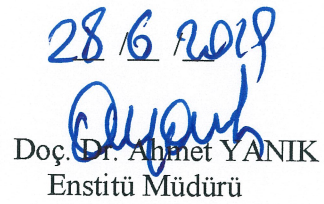 28/6/2019
Doç. Dr. Ahmet YANIK
Enstitü Müdürü